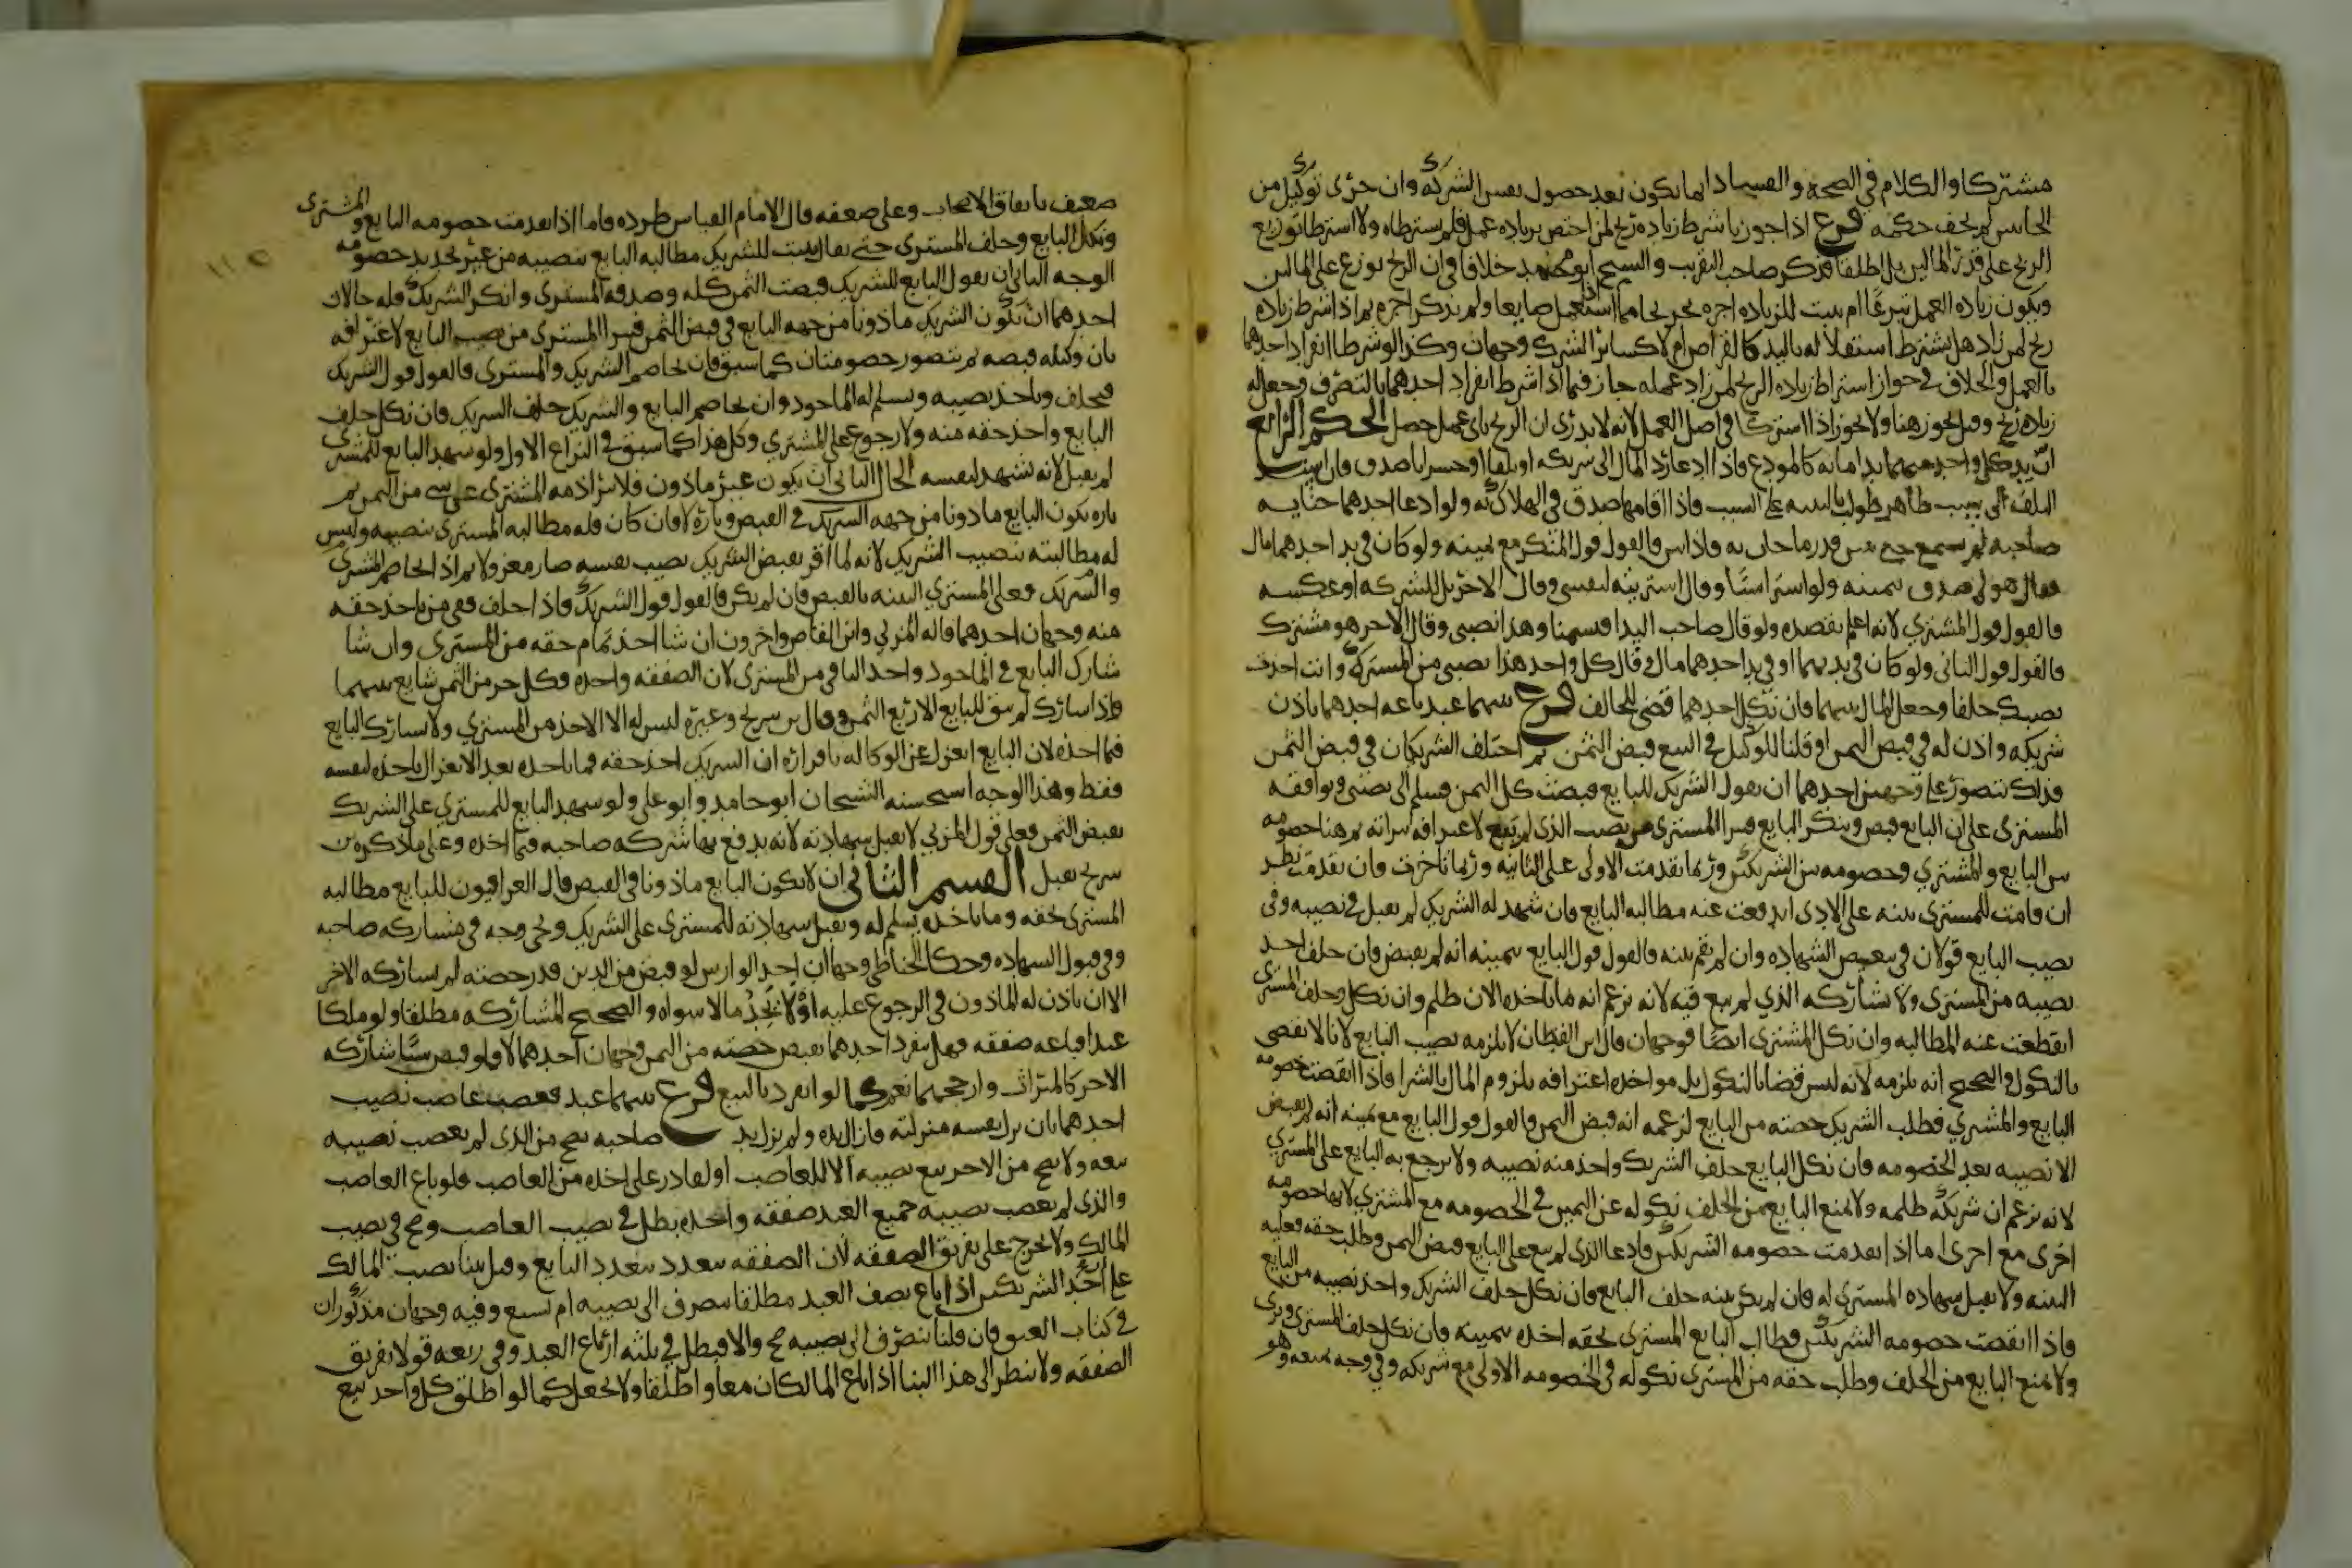 مشتركا والكلام في الصحة والفساد انما يكون بعد حصول نفس الشركة وان جرى توكيل من
الجانبين لم يخف حكمه فرع اذا جوزنا شرط زيادة ربح لمن اختص بزيادة عمل فلم يشترطاه ولا اشترطا توزيع
الربح على قدر المالين بل اطلقا فذكر صاحب التقريب والشيخ ابو محمد خلافا في ان الربح يوزع على المالين
ويكون زيادة العمل تبرعا ام يثبت للزيادة اجرة تخريجا مما اذا استعمل صانعا ولم يذكر اجرة ثم اذا شرط زيادة
ربح لمن زاد هل يشترط استقلاله باليد كالقراض ام لا كسائر الشرك وجهان وكذا لو شرطا انفراد احدهما
بالعمل والخلاف في جواز اشتراط زيادة الربح لمن زاد عمله جاز فيما اذا شرط انفراد احدهما بالتصرف وجعل له
زيادة ربح وقيل يجوز هنا ولا يجوز اذا اشتركا في اصل العمل لانه لا يدرى ان الربح باي عمل حصل الحكم الرابع
ان يد كل واحد منهما يد امانة كالمودع فاذا ادعا رد المال الى شريكه او تلفا او خسرانا صدق فان اسند
التلف الى سبب ظاهر طولب بالبينة على السبب فاذا اقامها صدق في الهلاك به ولو ادعا احدهما خيانة
صاحبه لم يسمع حتى يبين قدر ما خان به فاذا بين فالقول قول المنكر مع يمينه ولو كان في يد احدهما مال
فقال هو لي صدق بيمينه ولو اشترا شيئا وقال اشتريته لنفسي وقال الاخر بل للشركة او عكسه
فالقول قول المشتري لانه اعلم بقصده ولو قال صاحب اليد اقتسمنا وهذا نصيبي وقال الاخر هو مشترك
فالقول قول الثاني ولو كان في يديهما او في يد احدهما مال وقال كل واحد هذا نصيبي من المشترك وانت اخذت
نصيبك حلفا وجعل المال بينهما فان نكل احدهما قضي للحالف فرع بينهما عبد باعه احدهما باذن
شريكه واذن له في قبض الثمن او قلنا للوكيل في البيع قبض الثمن ثم اختلف الشريكان في قبض الثمن
فذلك يتصور على وجهين احدهما ان يقول الشريك للبايع قبضت كل الثمن فسلم الي نصيبي ويوافقه
المشتري على ان البايع قبض وينكر البايع فيبرا المشتري من نصيب الذي لم يبع لاعترافه ببراته ثم هنا خصومة
بين البايع والمشتري وخصومة بين الشريكين وربما تقدمت الاولى على الثانية وربما تاخرت فان تقدمت نظر
ان قامت للمشتري بينة على الاداء اندفعت عنه مطالبة البايع فان شهد له الشريك لم يقبل في نصيبه وفي
نصيب البايع قولان في تبعيض الشهادة وان لم تقم بينة فالقول قول البايع بيمينه انه لم يقبض فان حلف اخذ
نصيبه من المشتري ولا يشاركه الذي لم يبع فيه لانه يزعم انه ما ياخذه الان ظلم وان نكل وحلف المشتري
انقطعت عنه المطالبة وان نكل المشتري ايضا فوجهان قال ابن القطان لا يلزمه نصيب البايع لانا لا نقضي
بالنكول والصحيح انه يلزمه لانه ليس قضا بالنكول بل مواخذة اعترافه بلزوم المال بالشرا فاذا انقضت خصومة
البايع والمشتري فطلب الشريك حصته من البايع لزعمه انه قبض الثمن فالقول قول البايع مع يمينه انه لم يقبض
الا نصيبه بعد الخصومة فان نكل البايع حلف الشريك واخذ منه نصيبه ولا يرجع به البايع على المشتري
لانه يزعم ان شريكه ظلمه ولا يمنع البايع من الحلف نكوله عن اليمين في الخصومة مع المشتري لانها خصومة
اخرى مع اخرى اما اذا تقدمت خصومة الشريكين فادعا الذي لم يبع على البايع قبض الثمن وطلب حقه فعليه
البينة ولا يقبل شهادة المشتري له فان لم يكن بينة حلف البايع فان نكل حلف الشريك واخذ نصيبه من البايع
واذا انقضت خصومة الشريكين فطالب البايع المشتري بحقه اخذه بيمينه فان نكل حلف المشتري وبرى
ولا يمنع البايع من الحلف وطلب حقه من المشتري نكوله في الخصومة الاولى مع شريكه وفي وجه يمنعه وهو
ضعيف باتفاق الاصحاب وعلى ضعفه قال الامام القياس طرده فاما اذا تقدمت خصومة البايع والمشتري
ونكل البايع وحلف المشتري حتى يقال يثبت للشريك مطالبة البايع بنصيبه من غير تجديد خصومة
الوجه الثاني ان يقول البايع للشريك قبضت الثمن كله وصدقه المشتري وانكر الشريك فله حالان
احدهما ان يكون الشريك ماذونا من جهة البايع في قبض الثمن فيبرا المشتري من نصيب البايع لاعترافه
بان وكيله قبضه ثم يتصور خصومتان كما سبق فان تخاصم الشريك والمشتري فالقول قول الشريك
فيحلف وياخذ نصيبه ويسلم له الماخوذ وان تخاصم البايع والشريك حلف الشريك فان نكل حلف
البايع واخذ حقه منه ولا رجوع على المشتري وكل هذا كما سبق في النزاع الاول ولو شهد البايع للمشتري
لم يقبل لانه يشهد لنفسه الحال الثاني ان يكون غير ماذون فلا تبرا ذمة المشتري عن شيء من الثمن ثم
تارة يكون البايع ماذونا من جهة الشريك في القبض وتارة لا فان كان فله مطالبة المشتري بنصيبه وليس
له مطالبته بنصيب الشريك لانه لما اقر بقبض الشريك نصيب نفسه صار معزولا ثم اذا تخاصم المشتري
والشريك فعلى المشتري البينة بالقبض فان لم يكن فالقول قول الشريك فاذا حلف ففي من ياخذ حقه
منه وجهان احدهما قاله المزني وابن القاص واخرون ان شا اخذ تمام حقه من المشتري وان شا
شارك البايع في الماخوذ واخذ الباقي من المشتري لان الصفقة واحدة وكل جزء من الثمن شايع بينهما
واذا شاركه لم يبق للبايع الا ربع الثمن وقال ابن سريج وغيره ليس له الا الاخذ من المشتري ولا يشارك البايع
فيما اخذه لان البايع انعزل عن الوكالة باقراره ان الشريك اخذ حقه فما ياخذه بعد الانعزال ياخذه لنفسه
فقط وهذا الوجه استحسنه الشيخان ابو حامد وابو علي ولو شهد البايع للمشتري على الشريك
بقبض الثمن فعلى قول المزني لا يقبل شهادته لانه يدفع بها شركة صاحبه فيما اخذه وعلى ما ذكره ابن
سريج يقبل القسم الثاني ان لا يكون البايع ماذونا في القبض قال العراقيون للبايع مطالبة
المشتري بحقه وما ياخذه يسلم له ويقبل شهادته للمشتري على الشريك ويجي وجه في مشاركة صاحبه
وفي قبول الشهادة وحكا الحناطي وجها ان احد الوارثين لو قبض من الدين قدر حصته لم يشاركه الاخر
الا ان ياذن له الماذون في الرجوع عليه او لا يجد مالا سواه والصحيح المشاركة مطلقا ولو ملكا
عبدا فباعه صفقة فهل ينفرد احدهما بقبض حصته من الثمن وجهان احدهما لا ولو قبض شيئا شاركه
الاخر كالميراث وارجحهما نعم كما لو انفرد بالبيع فرع بينهما عبد فغصب غاصب نصيب
احدهما بان نزل نفسه منزلته فازال يده ولم يزل يد صاحبه صح من الذي لم يغصب نصيبه
بيعه ولا يصح من الاخر بيع نصيبه الا للغاصب او لقادر على اخذه من الغاصب فلو باع الغاصب
والذي لم يغصب نصيبه جميع العبد صفقة واحدة بطل في نصيب الغاصب وصح في نصيب
المالك ولا يخرج على تفريق الصفقة لان الصفقة تتعدد بتعدد البايع وقيل يبنا نصيب المالك
على احد الشريكين اذا باع نصف العبد مطلقا ينصرف الى نصيبه ام يشيع وفيه وجهان مذكوران
في كتاب العتق فان قلنا ينصرف الى نصيبه صح والا فيبطل في ثلثة ارباع العبد وفي ربعه قولا تفريق
الصفقة ولا ينظر الى هذا البنا اذا باع المالكان معا واطلقا ولا نجعل كما لو اطلق كل واحد بيع